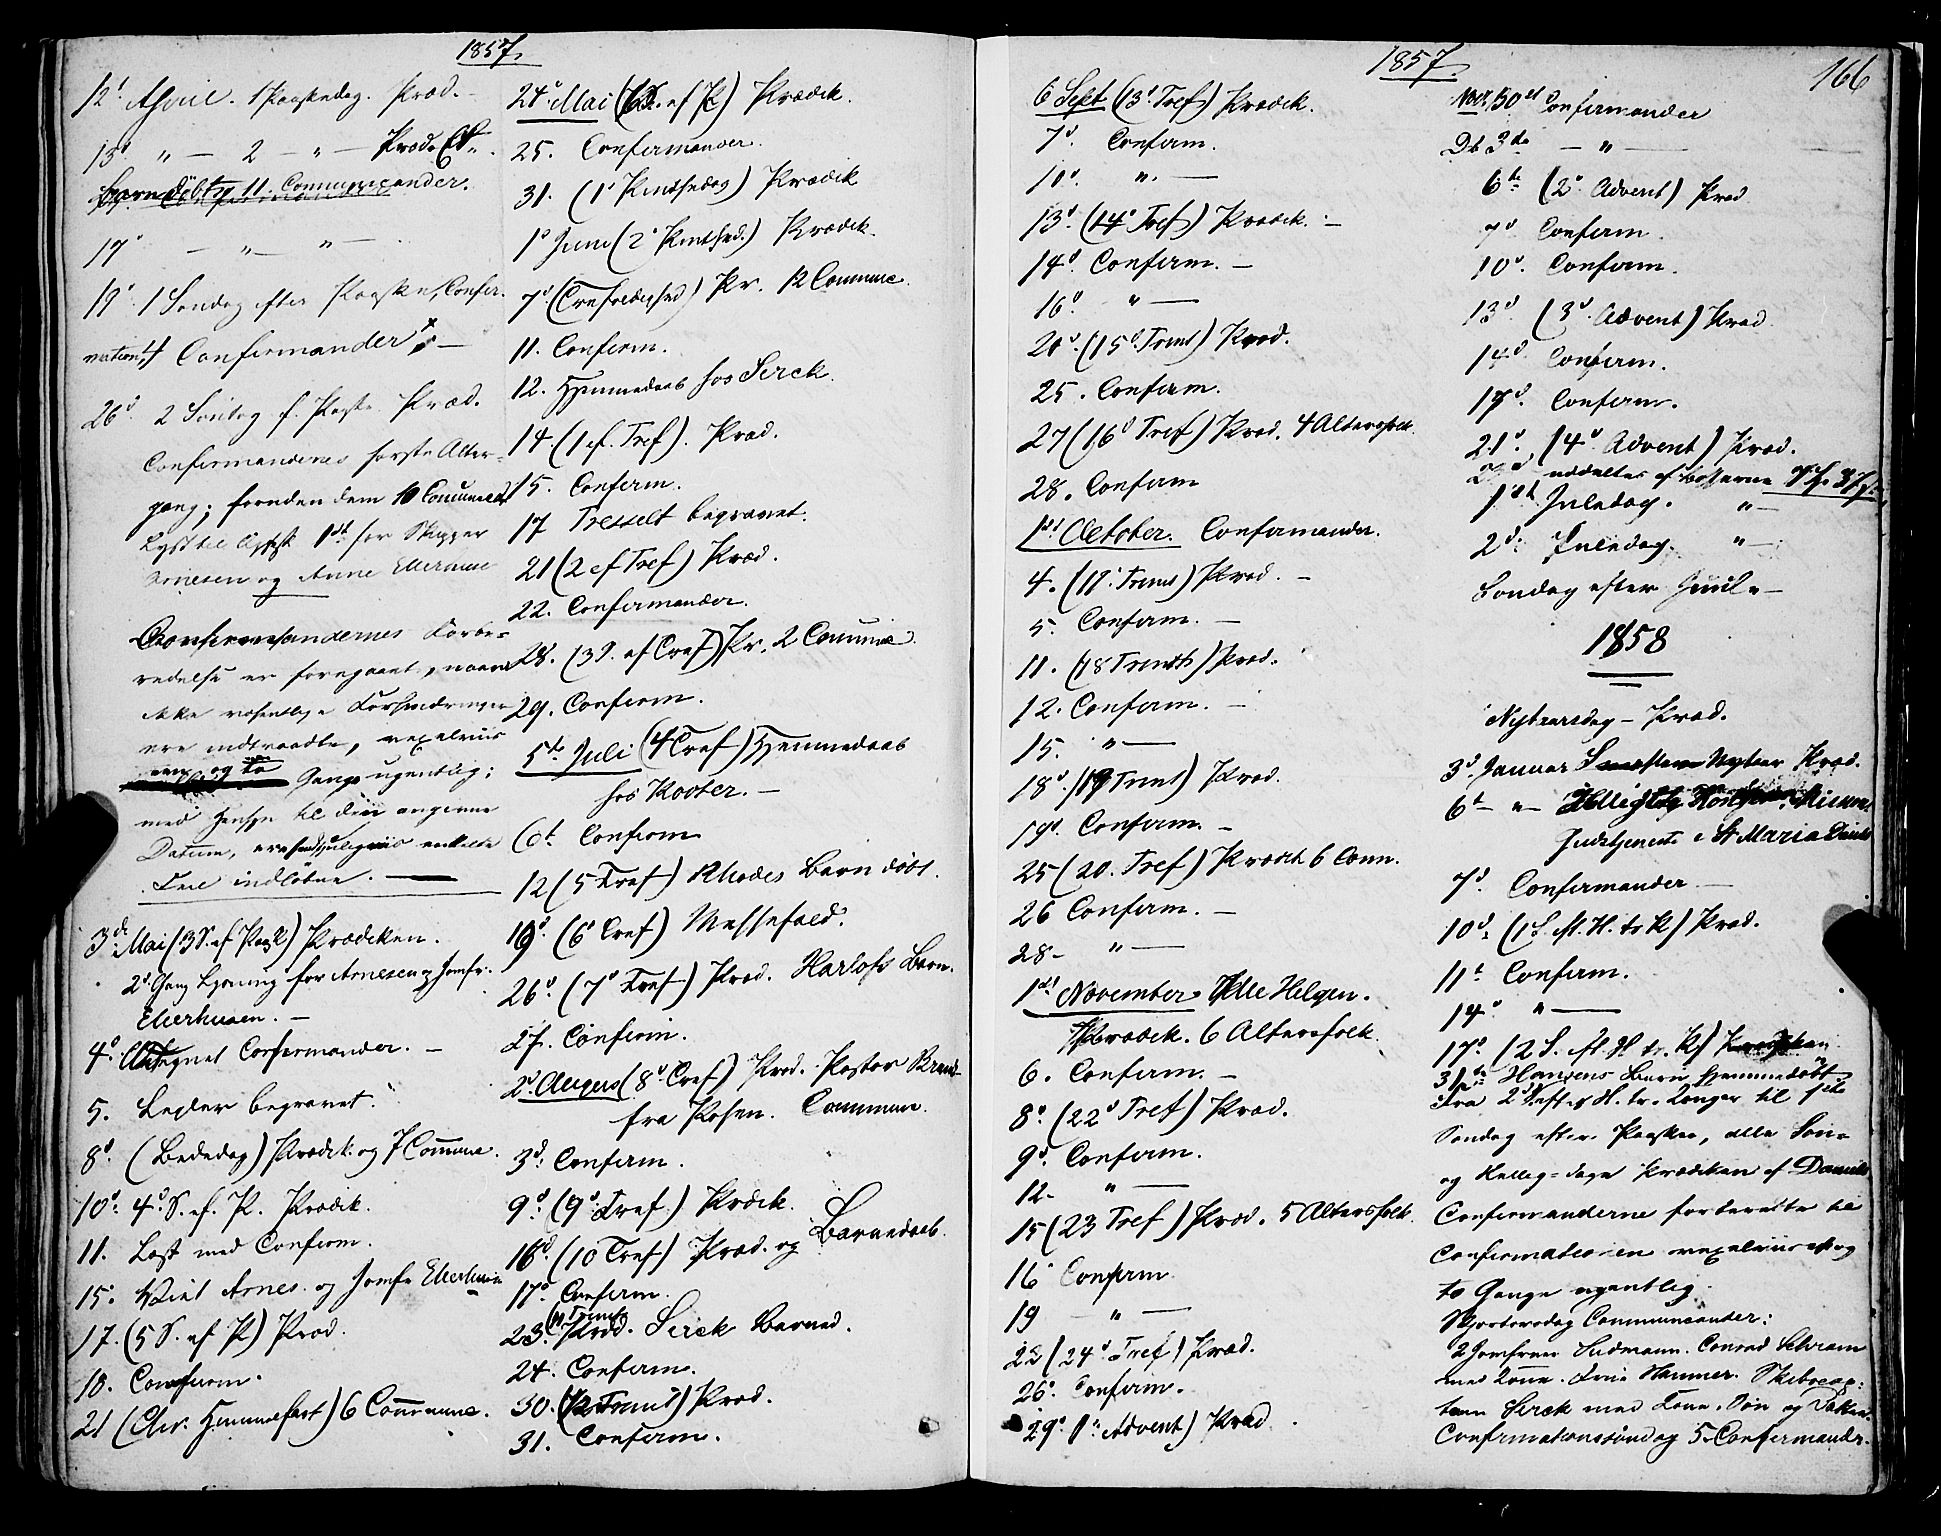 1857.
12t April. 1 Paaskedag. Præd.
13d " — 2 — " — Præd.
Barn døbt og 11 Communicander.
17d — " — " —
19d 1 Søndag efter Paaske, Confir-
mation, 4 Confirmander
26d 2 Søndag f. Paaske Præd.
Confirmandernes første Alter-
gang; foruden dem 10 Communic.
Lyst til Ægtesk 1st for Skipper
Arnesen og Anne Ellerhusen
Confirmandernes Forbe-
redelse er foregaaet, naar
ikke væsentlige Forhindringer
ere indtraadte, vexelviis
een og to Gange ugentlig;
med Hensyn til den angivne
Datum, ere sandsynligviis enkelte
Feil indløbne. —
3de Mai (3 S. ef Pask) Prædiken.
2d Gang Lysning for Arnesen og Jomfr.
Ellerhusen. —
4d Confirmander. —
5. begravet.
8d (Bededag) Prædik. og 7 Commune.
10d 4d S. ef. P. Prædik.
11. Læst med Confirm.
15d Viet Arnes. og Jomfr Ellerhusen
17. (5 S. ef P) Præd.
18. Confirm.
21 (Chr. Himmelfart) 6 Commune.
24d Mai (6 S. ef P) Prædik.
25. Confirmander.
31. (1d Pintsedag) Prædik
1d Juni (2d Pintsed.) Prædik.
7d (Trefoldighed) Pr. 12 Commune.
11. Confirm.
12. Hjemmedaab hos Serck.
14. (1 ef. Tref). Præd.
15. Confirm.
17 Tresselt begravet.
21 (2 ef Tref) Præd.
22. Confirmander.
28. (3 S. ef Tref) Pr. 2 Commune
29. Confirm.
5te Juli (4 Tref) Hjemmedaab
hos Kooter. —
6t Confirm
12 (5 Tref) Rhodes Barn døbt.
19d (6 Tref) Messefald.
26d (7d Tref) Præd. Harloffs Barn.
27. Confirm.
2d August (8d Tref) Præd. Pastor Brand
fra Posen. Commune.
3d Confirm.
9d (9d Tref) Prædik.
16d (10 Tref) Præd. og Barnedaab.
17d Confirm.
23. (11 Trinit) Præd. Serck Barned.
24. Confirm.
30. (12 Trinit) Præd.
31. Confirm.
1857
166
6 Sept (13d Tref) Prædik.
7d Confirm.
10d " —
13d (14d Tref) Prædik. —
14d Confirm. —
16d " —
20d (15d Trinit) Præd.
25. Confirm.
27 (16d Tref) Præd. 4 Altersfolk.
28. Confirm
1st October. Confirmander.
4. (17d Trinit) Præd. —
5. Confirm. —
11. (18 Trinit) Præd.
12. Confirm. —
15. " —
18d (19 Trinit) Præd.
19d Confirm. —
25 (20. Tref) Prædik 6 Comm.
26 Confirm. —
28 — " —
1st November Alle Helgen.
Prædik. 6 Altersfolk.
6. Confirm. —
8d (22d Tref) Præd.
9d Confirm.
12 — " —
15 (23 Tref) Præd. 5 Altersfolk.
16 Confirm
19 " —
22 (24d Tref) Præd.
26d Confirm.
29d 1ste Advent) Præd
Novr. 30d Confirmander
Db 3de — " —
6te (2d Advent) Præd
7d Confirm.
10d Confirm.
13d (3d Advent) Præd.
14d Confirm.
17d Confirm.
21d (4d Advent) Præd.
uddeltes af Bøsserne
1st Juledag. " —
2d Juledag. " —
Søndag efter Juul " —
1858
Nytaarsdag — Præd.
3d Januar Nytaar Præd.
6t — " —
Gudstjeneste i St Maria
7d Confirmander —
10d (1 S. eft. H. tr K) Præd.
11t Confirm.
14d " —
17d (2 S. eft H tr. K) Prædiken
31te Hansens Barn hjemmedøbt
Fra 2d S. eft. H. tr. Konger til 1ste
Søndag efter Paaske, alle Søn-
og Hellig-dage Prædiken af
Confirmanderne forberedte til
Confirmationen vexelviis et og
to Gange ugentlig.
Skjærtorsdag Communicander:
2 Jomfruer Sudmann. Conrad Schram
med Kone. Frue Hammer. Skibscap-
tain Serck med Kone. Søn og Datter.
Confirmationssøndag 5 Confirmander.